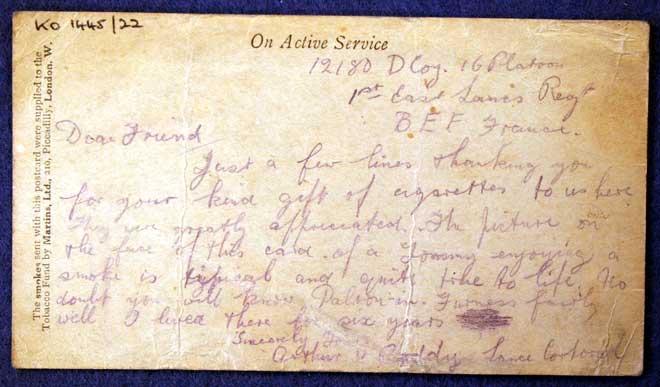 KO 1445/22
On Active Service
The smokes sent with this postcard were supplied to the
Tobacco Fund by Martins, Ltd., 210, Piccadilly, London, W.
12180 D Coy. 16 Platoon
1st East Lancs Regt
B.E.F. France.
Dear Friend
Just a few lines thanking you
for your kind gift of cigarettes to us here
They are greatly appreciated. The picture on
the face of this card of a Tommy enjoying a
smoke is typical and quite true to life. No
doubt you will know Dalton-in-Furness fairly
well I lived there for six years
Sincerely Yours
Arthur Lance Corporal